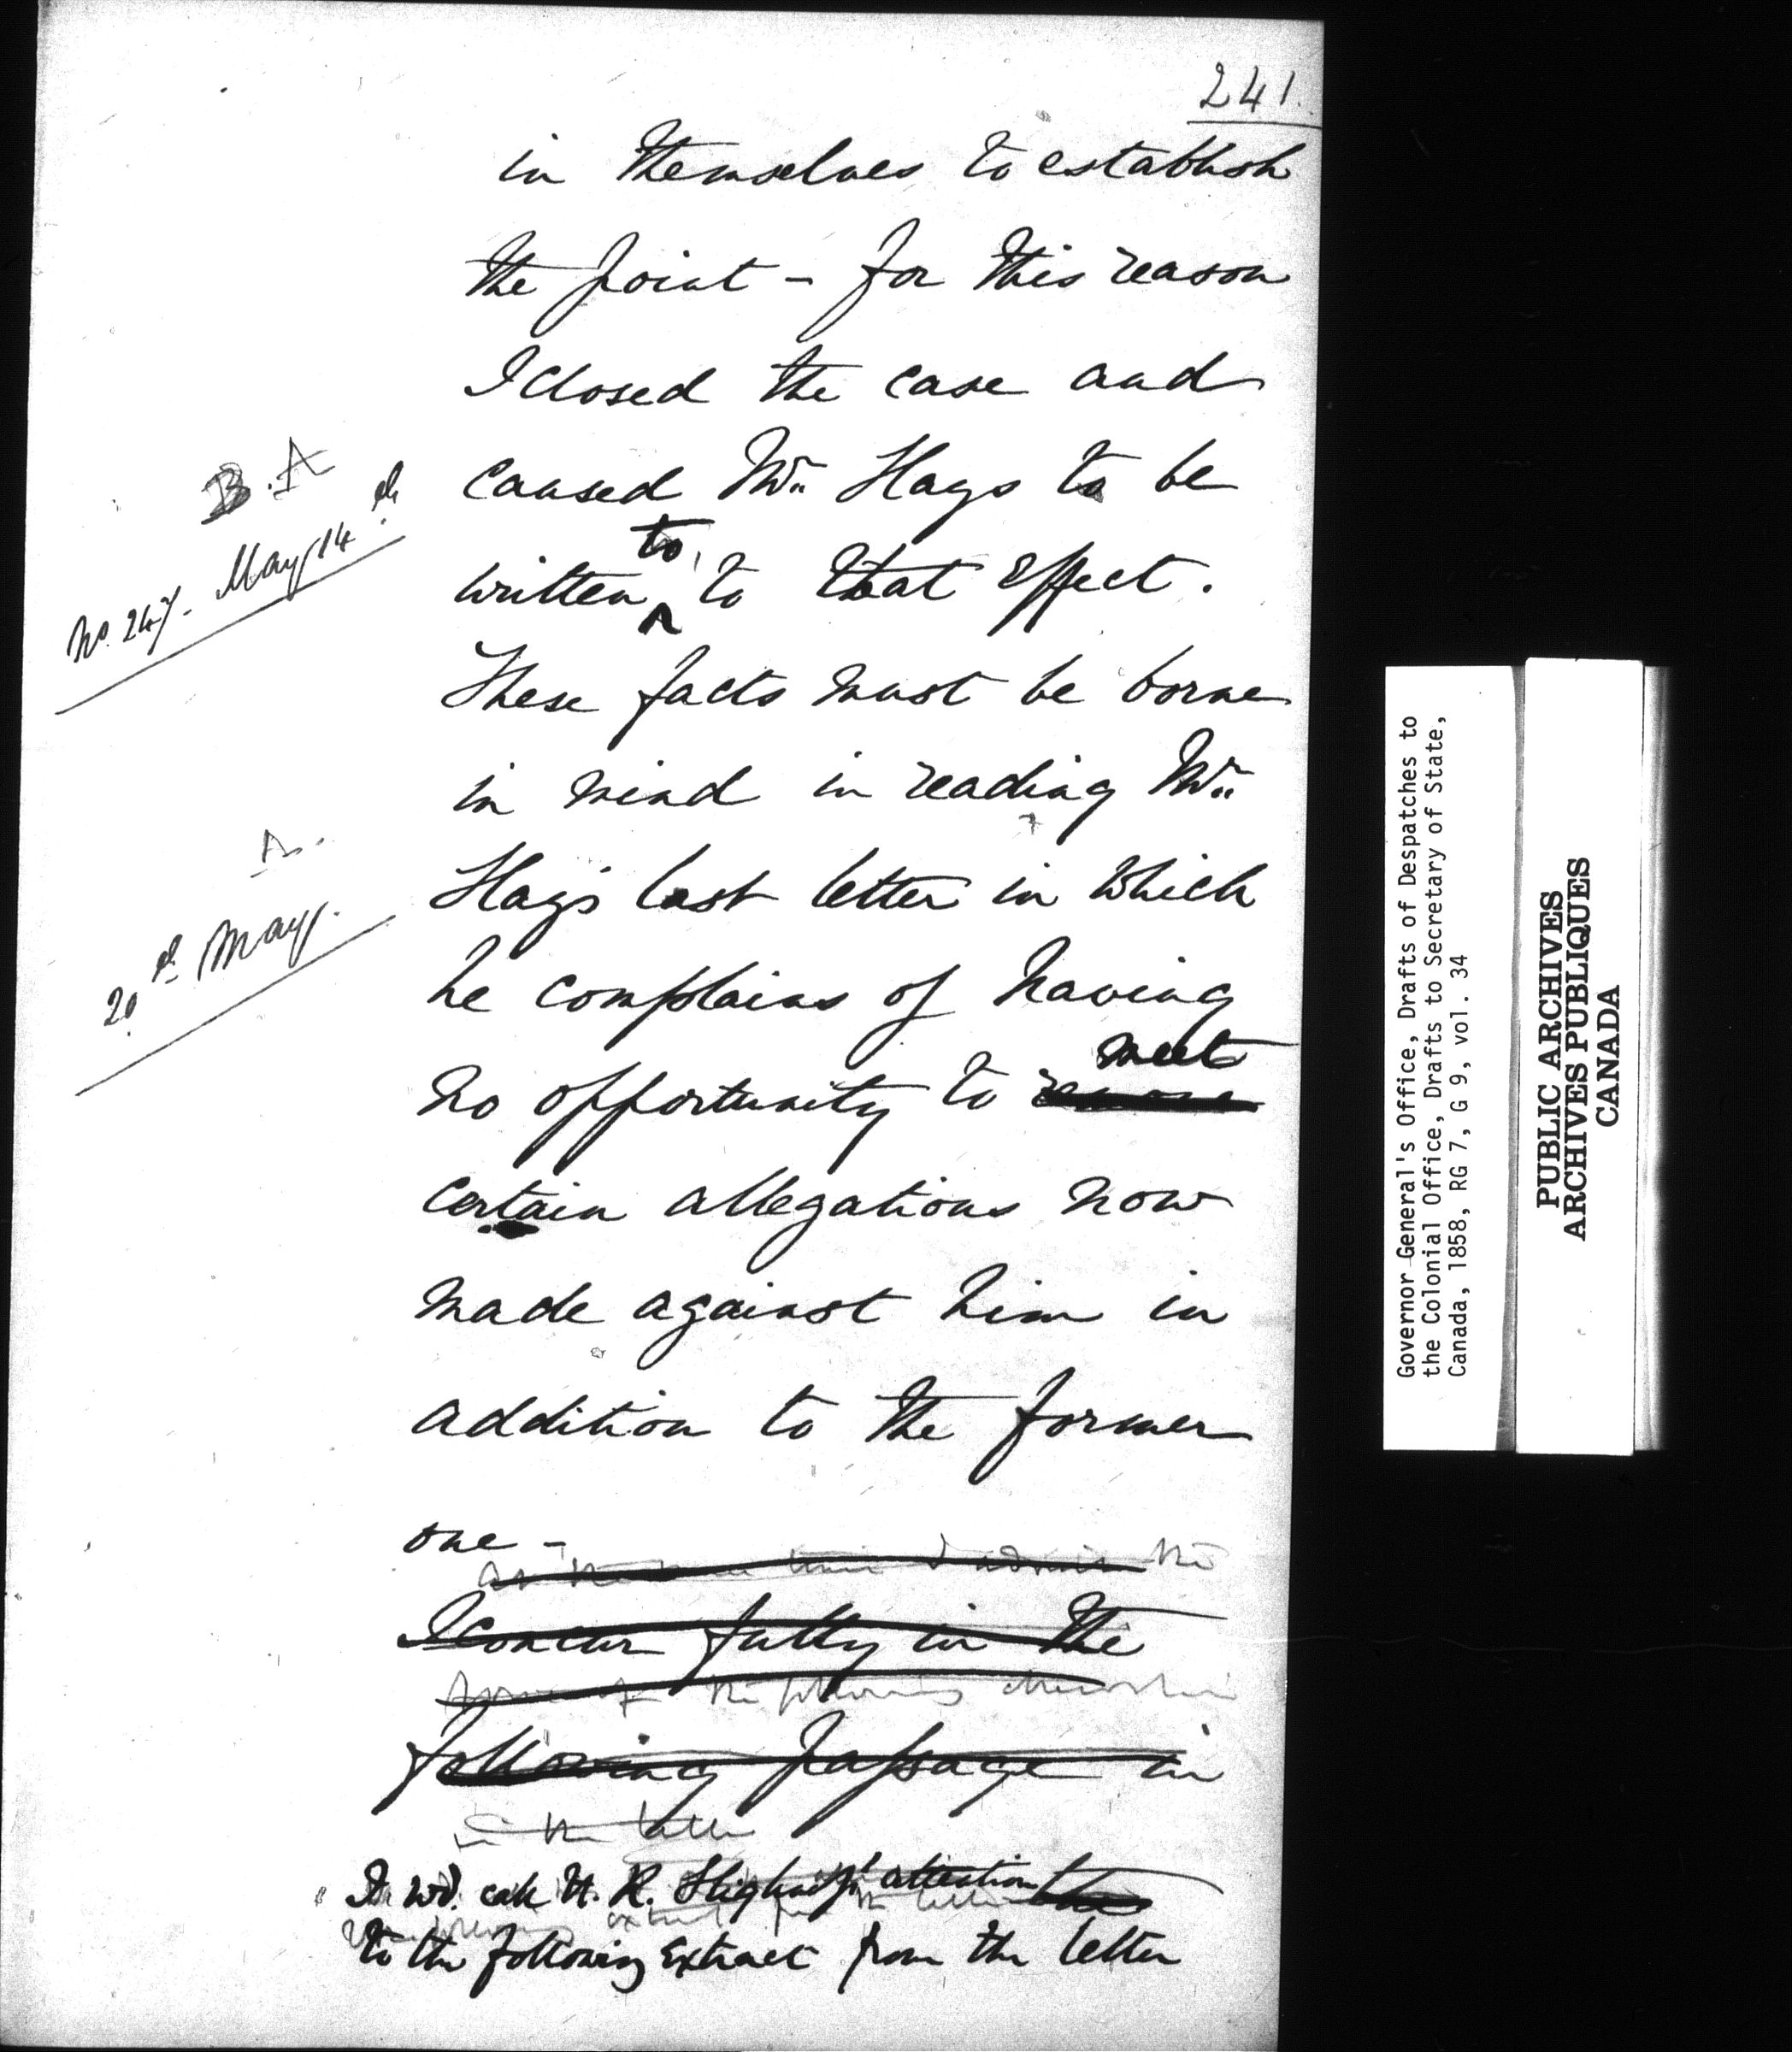 241.
in themselves to establish
the point - for this reason
I closed the case and
B. A
caused Mr. Hays to be
No. 247. May 14th
to
written ^ to that effect.
These facts must be borne
in mind in reading Mr.
A.
Hays last letter in which
20th May.
he complains of having
meet
no opportunity to
certain allegations now
made against him in
addition to the former
one -
the
I concur fully in the
the following
following passage in
in the letter
I wd. call Y. R. Highness' attention
to the following Extract from the letter
Governor General's Office, Drafts of Despatches to
the Colonial Office, Drafts to Secretary of State,
Canada, 1858, RG 7, G 9, vol. 34
PUBLIC ARCHIVES
ARCHIVES PUBLIQUES
CANADA